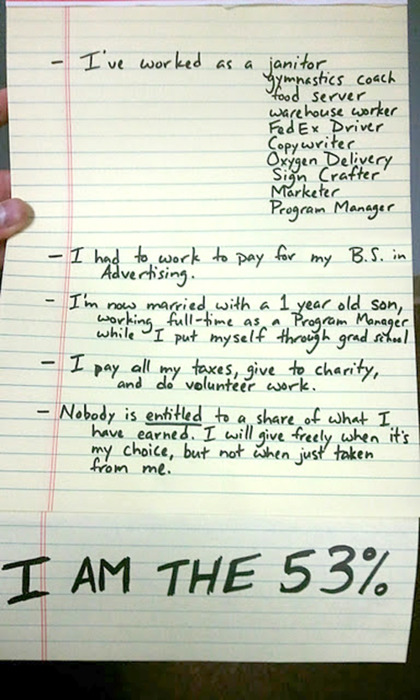 - I've worked as a janitor
gymnastics coach
food server
warehouse worker
FedEx Driver
Copywriter
Oxygen Delivery
Sign Crafter
Marketer
Program Manager
- I had to work to pay for my B.S. in
Advertising.
- I'm now married with a 1 year old son,
working full-time as a Program Manager
while I put myself through grad school
- I pay all my taxes, give to charity,
and do volunteer work.
- Nobody is entitled to a share of what I
have earned. I will give freely when it's
my choice, but not when just taken
from me.
I AM THE 53%